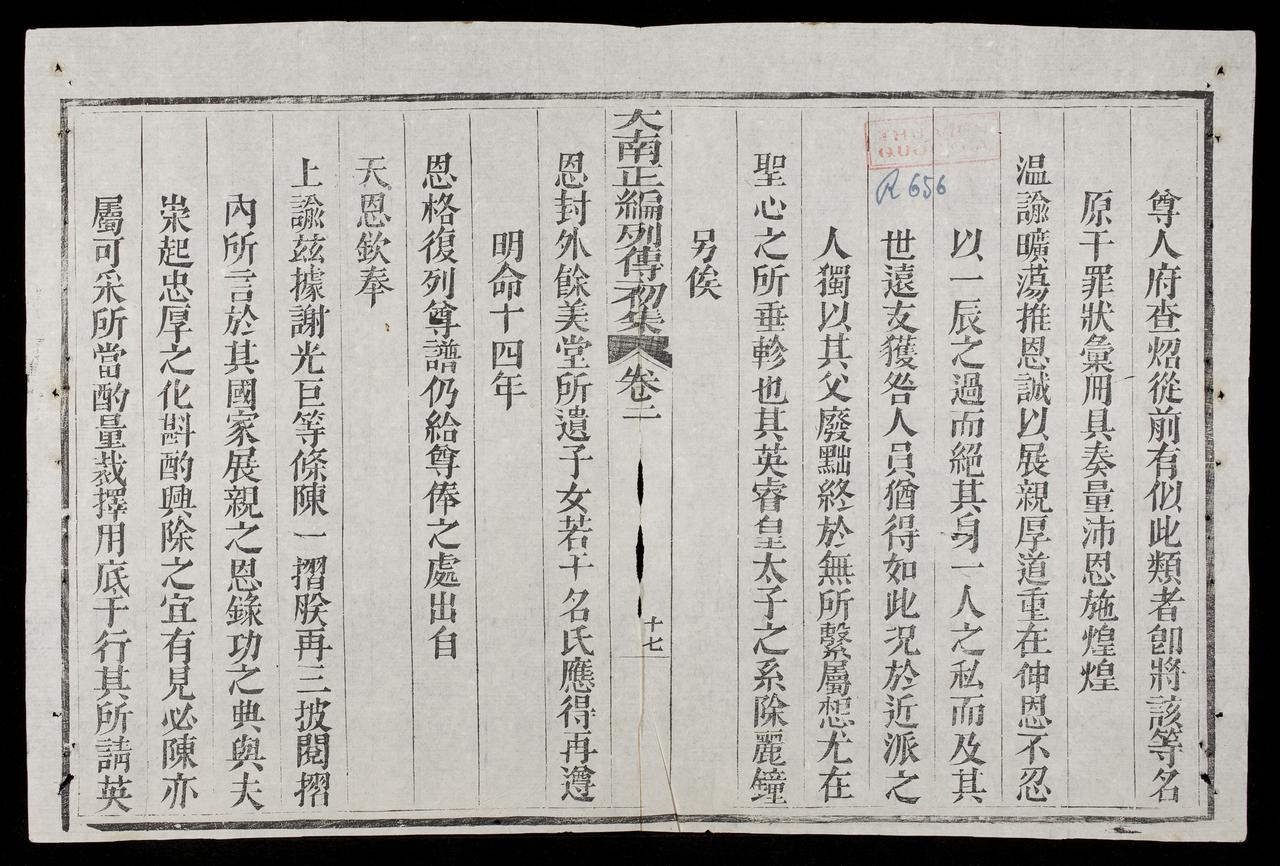 尊人府查炤從前有似此類者卽將該等名
原干罪狀彙冊具奏量沛恩施煌煌
温諭曠蕩推恩誠以展親厚道重在伸恩不忍
以一辰之過而絕其身一人之私而及其
世遠支獲咎人員猶得如此况於近派之
人獨以其父廢黜終於無所繫屬想尤在
聖心之所垂軫也其英睿皇太子之系除麗鐘
另俟
大南正編列傳初集 卷二
十七
恩封外餘美堂所遺子女若干名氏應得再遵
明命十四年
恩格復列尊譜仍給尊俸之處出自
天恩欽奉
上諭茲據謝光巨等條陳一摺朕再三披閱摺
內所言於其國家展親之恩錄功之典與夫
崇起忠厚之化斟酌興除之宜有見必陳亦
屬可采所當酌量裁擇用底于行其所請英
R 656